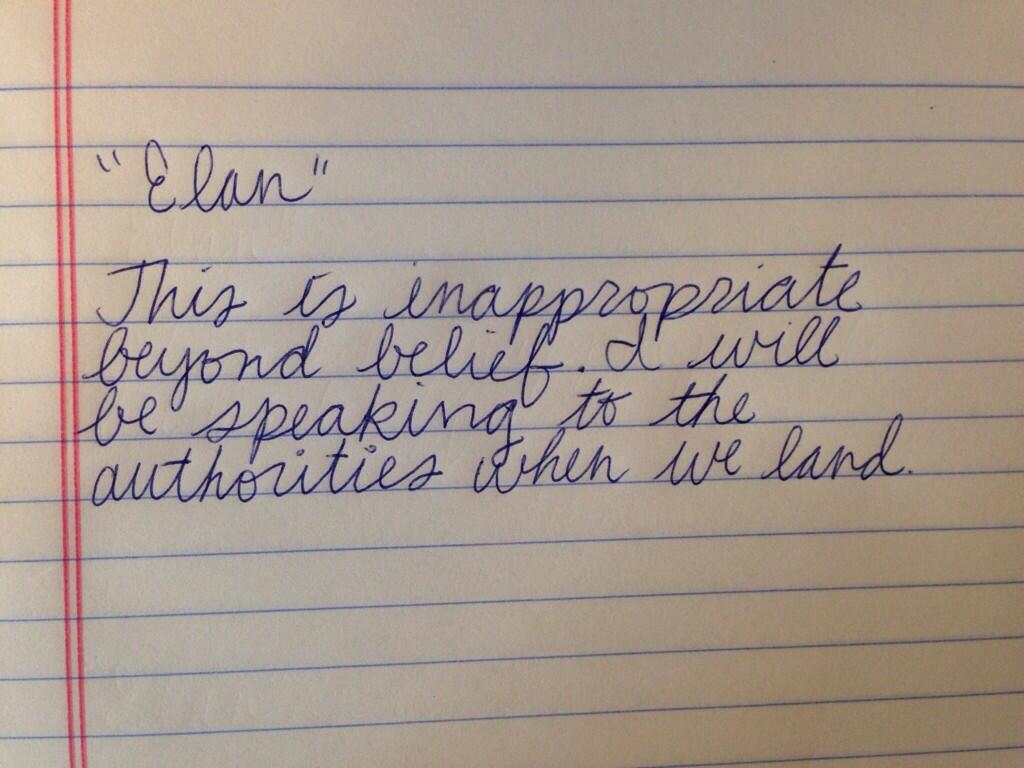 "Elan"
This is inappropriate
beyond belief. I will
be speaking to the
authorities when we land.